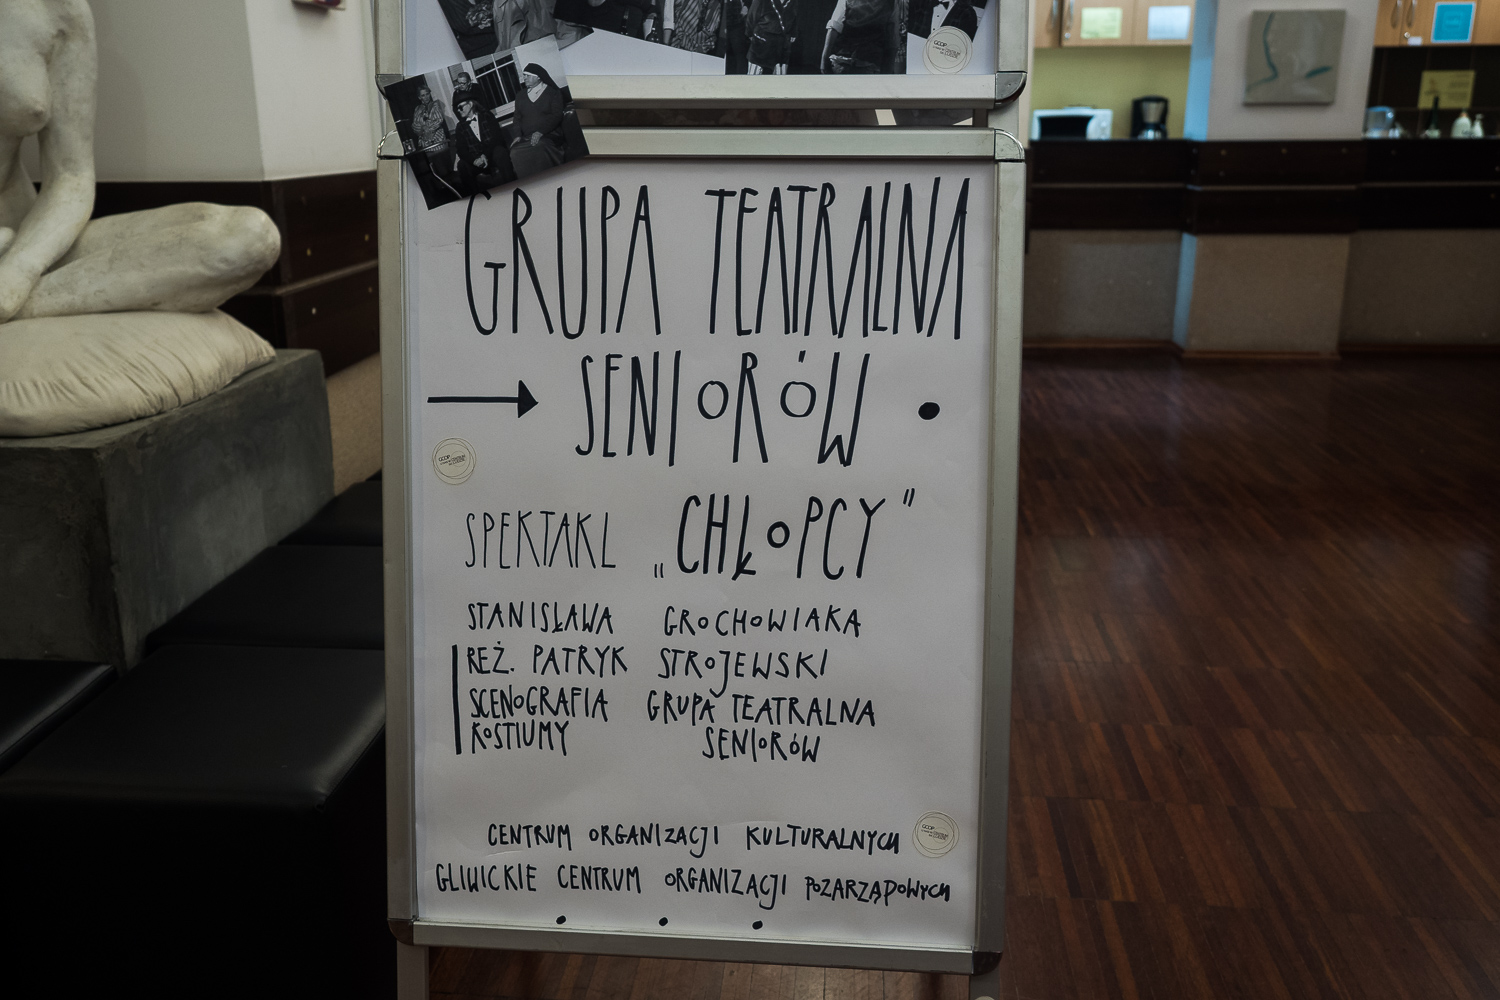 GRUPA TEATRALNA
SENIORÓW
SPEKTAKL „CHŁOPCY"
STANISŁAWA GROCHOWIAKA
REŻ. PATRYK STROJEWSKI
SCENOGRAFIA GRUPA TEATRALNA
KOSTIUMY SENIORÓW
CENTRUM ORGANIZACJI KULTURALNYCH
GLIWICKIE CENTRUM ORGANIZACJI POZARZĄDOWYCH